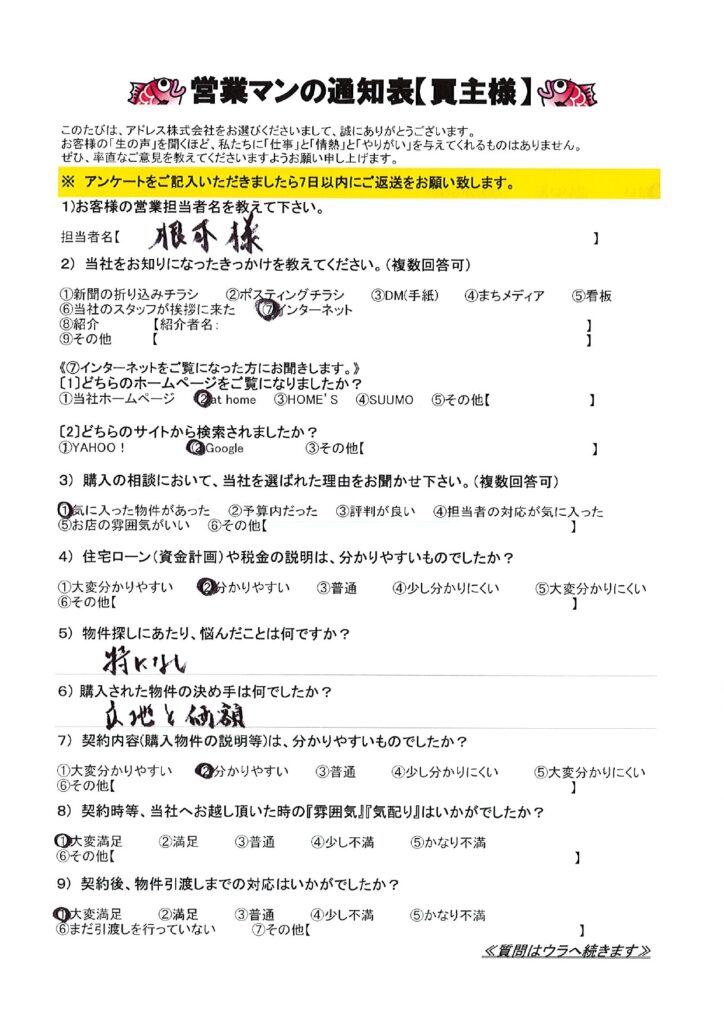 営業マンの通知表【買主様】
このたびは、アドレス株式会社をお選びくださいまして、誠にありがとうございます。
お客様の「生の声」を聞くほど、私たちに「仕事」と「情熱」と「やりがい」を与えてくれるものはありません。
ぜひ、率直なご意見を教えてくださいますようお願い申し上げます。
※ アンケートをご記入いただきましたら7日以内にご返送をお願い致します。
1)お客様の営業担当者名を教えて下さい。
担当者名【 根本様 】
2) 当社をお知りになったきっかけを教えてください。(複数回答可)
①新聞の折り込みチラシ ②ポスティングチラシ ③DM(手紙) ④まちメディア ⑤看板
⑥当社のスタッフが挨拶に来た ⑦インターネット
⑧紹介 【紹介者名: 】
⑨その他 【 】
《⑦インターネットをご覧になった方にお聞きします。》
〔1〕どちらのホームページをご覧になりましたか?
①当社ホームページ ②at home ③HOME'S ④SUUMO ⑤その他【 】
〔2〕どちらのサイトから検索されましたか?
①YAHOO! ②Google ③その他【 】
3) 購入の相談において、当社を選ばれた理由をお聞かせ下さい。(複数回答可)
①気に入った物件があった ②予算内だった ③評判が良い ④担当者の対応が気に入った
⑤お店の雰囲気がいい ⑥その他【 】
4) 住宅ローン(資金計画)や税金の説明は、分かりやすいものでしたか?
①大変分かりやすい ②分かりやすい ③普通 ④少し分かりにくい ⑤大変分かりにくい
⑥その他【 】
5) 物件探しにあたり、悩んだことは何ですか?
特になし
6) 購入された物件の決め手は何でしたか?
立地と価額
7) 契約内容(購入物件の説明等)は、分かりやすいものでしたか?
①大変分かりやすい ②分かりやすい ③普通 ④少し分かりにくい ⑤大変分かりにくい
⑥その他【 】
8) 契約時等、当社へお越し頂いた時の『雰囲気』『気配り』はいかがでしたか?
①大変満足 ②満足 ③普通 ④少し不満 ⑤かなり不満
⑥その他【 】
9) 契約後、物件引渡しまでの対応はいかがでしたか?
①大変満足 ②満足 ③普通 ④少し不満 ⑤かなり不満
⑥まだ引渡しを行っていない ⑦その他【 】
≪質問はウラへ続きます≫